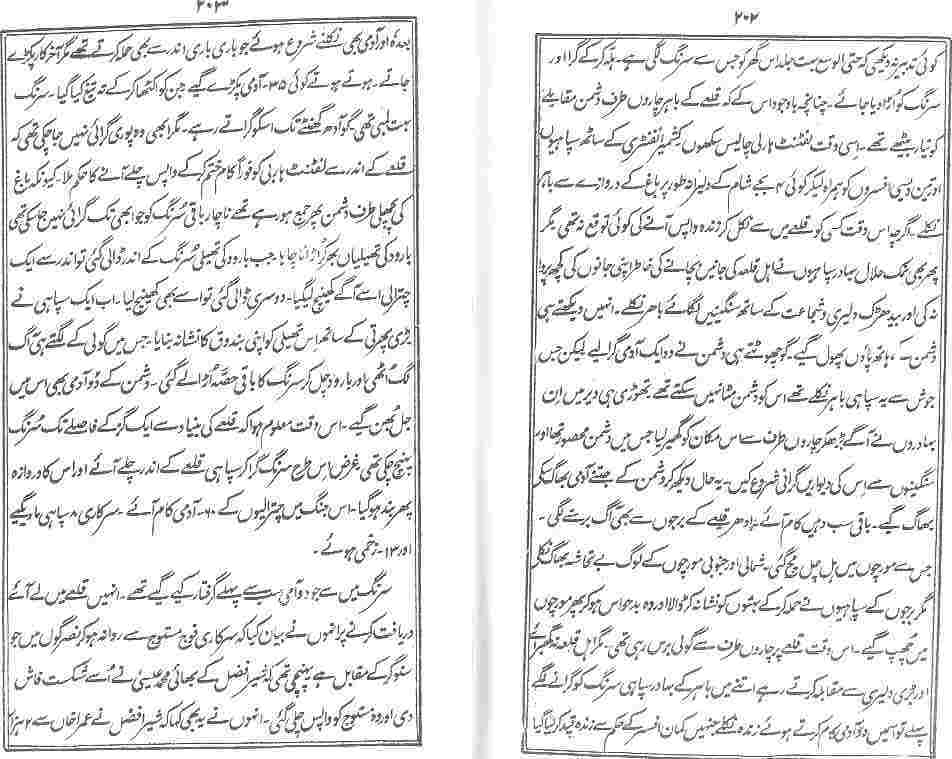 ۲۰۲
کوئی تدبیر نہ دیکھی کہ حتی الوسع بہت جلد اس گھر کو جس سے سرنگ لگی ہے۔ ہلہ کر کے گرا اور
سرنگ کو اڑا دیا جائے۔ چنانچہ باوجود اس کے کہ قلعے کے باہر چاروں طرف دشمن مقابلے
کو تیار بیٹھے تھے۔ اسی وقت لفٹنٹ ہارلی چالیس سکھوں کشمیر انفنٹری کے ساٹھ سپاہیوں
اور تین دیسی افسروں کو ہمراہ لیکر کوئی ۴ بجے شام کے دلیرانہ طور پر باغ کے دروازے سے باہر
نکلے۔ اگرچہ اس وقت کسی کو قلعے میں سے نکل کر زندہ واپس آنے کی کوئی توقع نہ تھی مگر
پھر بھی نمک حلال بہادر سپاہیوں نے اہل قلعہ کی جانیں بچانے کی خاطر اپنی جانوں کی کچھ پروا
نہ کی اور بیدھڑک دلیری و شجاعت کے ساتھ سنگینیں لگائے باہر نکلے۔ انہیں دیکھتے ہی
دشمن کے ہاتھ پاؤں پھول گیے۔ گو چھوٹتے ہی دشمن نے دو ایک آدمی گرا لیے لیکن جس
جوش سے یہ سپاہی باہر نکلے تھے اس کو دشمن مٹا نہیں سکتے تھے۔ تھوڑی ہی دیر میں ان
بہادروں نے آگے بڑھ کر چاروں طرف سے اس مکان کو گھیر لیا جس میں دشمن محصور تھا اور
سنگینوں سے اس کی دیواریں گرانی شروع کیں۔ یہ حال دیکھ کر دشمن کے جتنے آدمی بھاگ سکے
بھاگ گیے۔ باقی سب وہیں کام آئے۔ ادھر قلعے کے برجوں سے بھی آگ برسنے لگی۔
جس سے مورچوں میں ہل چل مچ گئی۔ شمالی اور جنوبی مورچوں کے لوگ بے تحاشہ بھاگ نکلے
مگر برجوں کے سپاہیوں نے حملہ کر کے بہتوں کو نشانہ کر ڈالا اور وہ بدحواس ہو کر پھر مورچوں
میں چھپ گیے۔ اس وقت قلعے پر چاروں طرف سے گولی برس رہی تھی۔ مگر اہل قلعہ نہ گھبرائے
اور بڑی دلیری سے مقابلہ کرتے رہے اتنے میں باہر کے بہادر سپاہی سرنگ کو گرانے لگے
پہلے تو اس میں دو آدمی کام کرتے ہوئے زندہ نکلے جنہیں کمان افسر کے حکم سے زندہ قید کر لیا گیا
۲۰۳
بعدہ اور آدمی بھی نکلنے شروع ہوئے جو باری باری اندر سے بھی حملہ کرتے تھے مگر آخر کار پکڑے
جاتے۔ ہوتے ہوتے کوئی ۳۵۔ آدمی پکڑے گیے جن کو اکٹھا کر کے تہ تیغ کیا گیا۔ سرنگ
بہت لمبی تھی۔ گو آدھ گھنٹے تک اسکو گراتے رہے۔ مگر ابھی وہ پوری گرائی نہیں جا چکی تھی کہ
قلعے کے اندر سے لفٹنٹ ہارلی کو فوراً کام ختم کر کے واپس چلے آنے کا حکم ملا۔ کیونکہ باغ
کی پچھلی طرف دشمن پھر جمع ہو رہے تھے ناچار باقی سرنگ کو جو ابھی تک گرائی نہیں جا سکی تھی
بارود کی تھیلیاں بھر کر اڑانا چاہا۔ جب بارود کی تھیلی سرنگ کے اندر ڈالی گئی تو اندر سے ایک
چترالی اسے آگے کھینچ لیگیا۔ دوسری ڈالی گئی تو اسے بھی کھینچ لیا۔ اب ایک سپاہی نے
بڑی پھرتی کے ساتھ اس تھیلی کو اپنی بندوق کا نشانہ بنایا۔ جس میں گولی کے لگتے ہی آگ
لگ اٹھی اور بارود جل کر سرنگ کا باقی حصہ اڑا لے گئی۔ دشمن کے دو آدمی بھی اس میں
جل بھن گیے۔ اس وقت معلوم ہوا کہ قلعے کی بنیاد سے ایک گز کے فاصلے تک سرنگ
پہنچ چکی تھی۔ غرض اس طرح سرنگ گرا کر سپاہی قلعے کے اندر چلے آئے اور اس کا دروازہ
پھر بند ہو گیا۔ اس جنگ میں چترالیوں کے ۶۰۔ آدمی کام آئے۔ سرکاری ۸ سپاہی مارے گیے
اور ۱۳۔ زخمی ہوئے۔
سرنگ میں سے جو دو آدمی سب سے پہلے گرفتار کیے گیے تھے۔ انہیں قلعے میں لے آئے
دریافت کرنے پر انہوں نے بیان کیا کہ سرکاری فوج مستوج سے روانہ ہو کر نصر گول میں جو
سنوگر کے مقابل ہے پہنچی تھی کہ شیر افضل کے بھائی محمد عیسیٰ نے اسے شکست فاش
دی اور وہ مستوج کو واپس چلی گئی۔ انہوں نے یہ بھی کہا کہ شیر افضل نے عمرا خاں سے ۲ ہزار